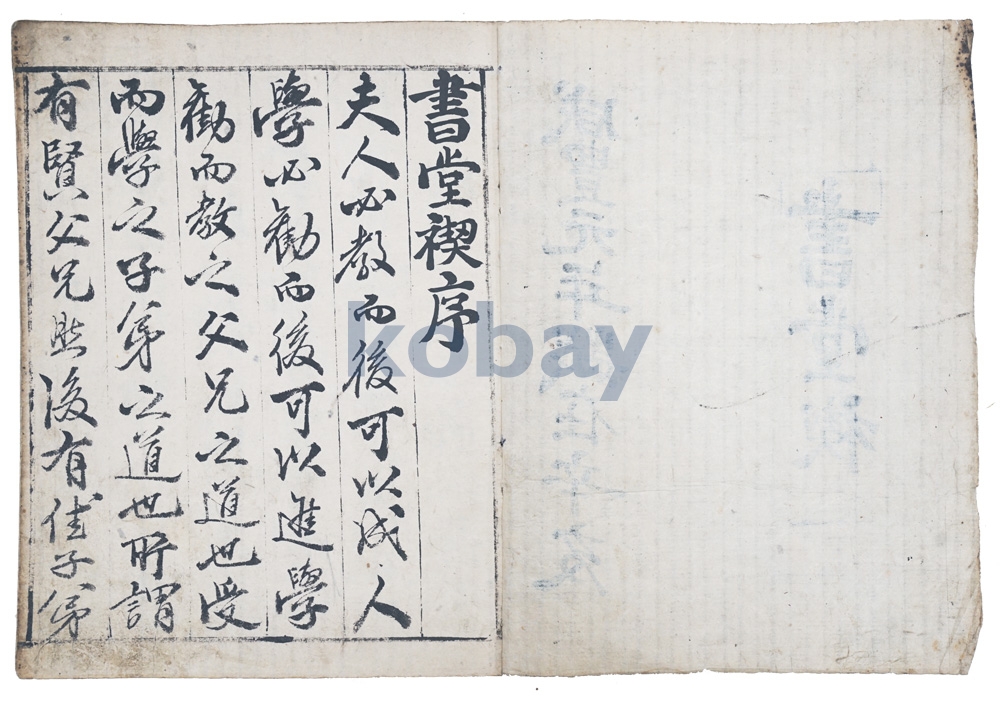 書堂禊序
夫人必教而後可以成人
學必勸而後可以進學
勸而教之父兄之道也受
而學之子弟之道也所謂
有賢父兄然後有佳子弟
kobay